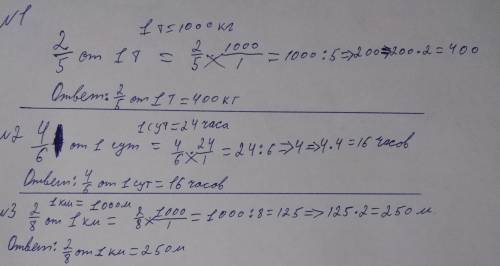 №1
1т=1000кг
2/5 от 1т = 2/5 × 1000/1 = 1000:5 => 200 => 200·2 = 400
Ответ: 2/5 от 1т = 400 кг
1 сут = 24 часа
№2 4/6 от 1 сут = 4/6 × 24/1 = 24:6 => 4 => 4·4 = 16 часов
Ответ: 4/6 от 1 сут = 16 часов
1км = 1000м
№3 2/8 от 1 км = 2/8 × 1000/1 = 1000:8 = 125 => 125·2 = 250 м
Ответ: 2/8 от 1 км = 250 м